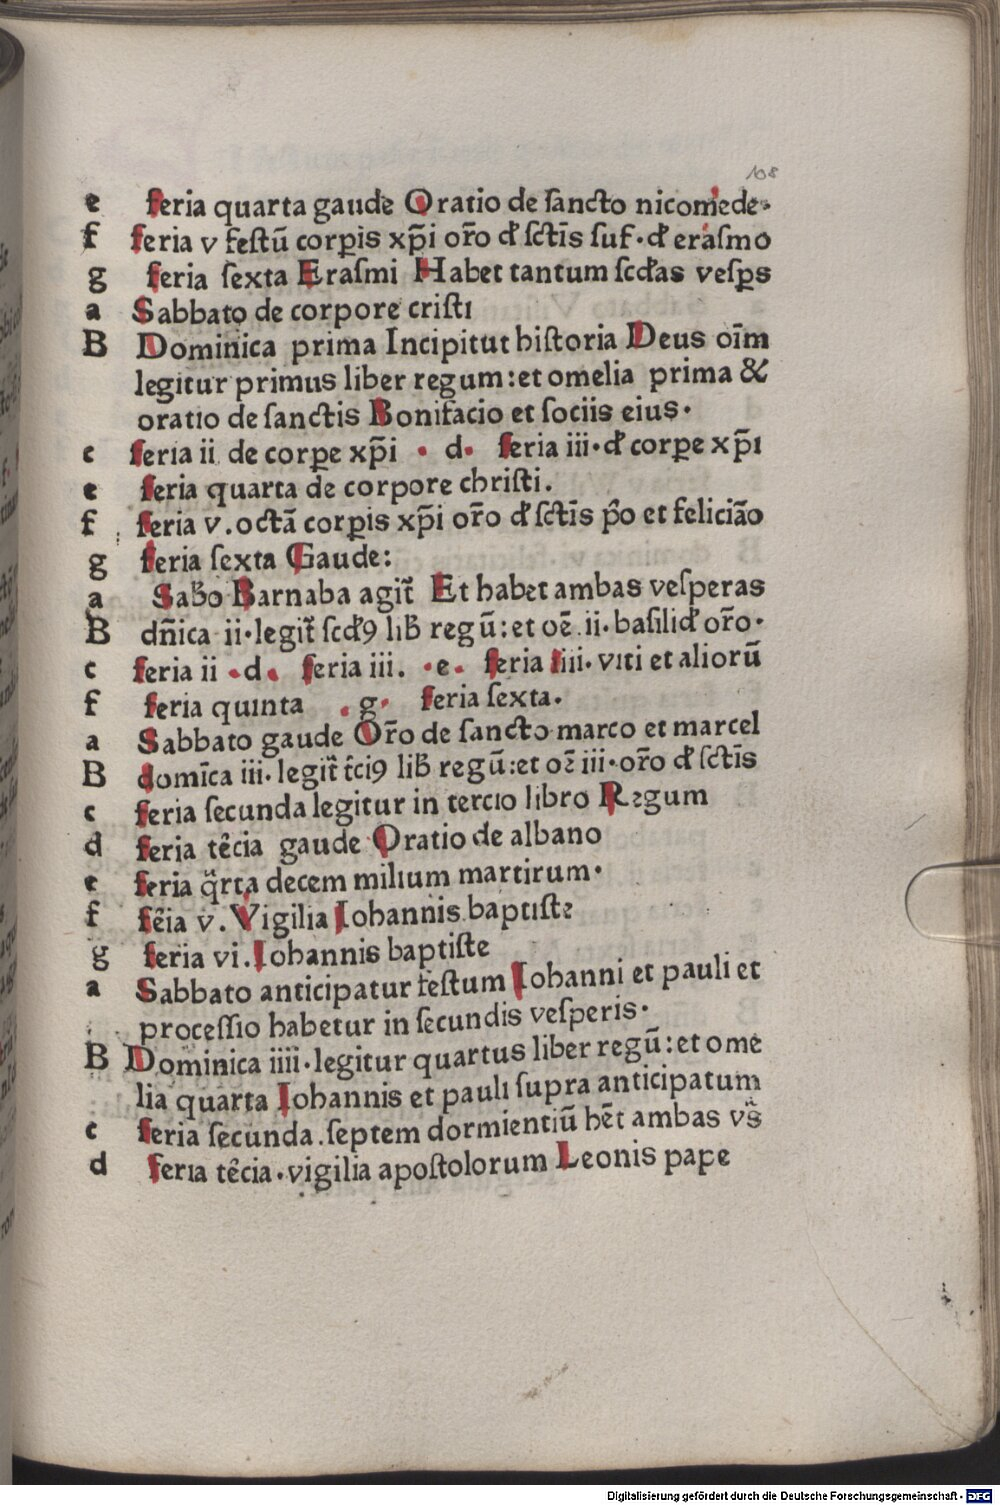 108
e feria quarta gaude Oratio de ſancto nicomede·
f feria v feſtū corꝑis xp̄i or̄o đ ſctīs ſuf·đ eraſmo
g feria ſexta Eraſmi Habet tantum ſcđas veſꝑs
a Sabbato de corpore criſti
B Dominica prima Incipitut hiſtoria Deus oīm
legitur primus liber regum:et omelia prima &
oratio de ſanctis Bonifacio et ſociis eius·
c feria ii de corꝑe xp̄i · d· feria iii·đ corꝑe xp̄i
e feria quarta de corpore chriſti.
f feria v.octā corꝑis xp̄i or̄o đ ſctīs p̄o et feliciāo
g feria ſexta Gaude:
a Sab̄o Barnaba agit̄ Et habet ambas veſperas
B dn̄ica ii·legit̄ ſcđ9 lib̄ regū:et oē .ii·baſiliđ or̄o·
c feria ii ·d· feria iii. ·e· feria iiii·viti et aliorū
f feria quinta ·g· feria ſexta·
a Sabbato gaude Or̄o de ſancto marco et marcel
B domīca iii·legit̄ t̄ci9 lib̄ regū:et oē iii·or̄o đ ſctīs
c feria ſecunda legitur in tercio libro Regum
d feria tēcia gaude Oratio de albano
e feria q̄rta decem milium martirum·
f fēia v.Vigilia Iohannis baptiſte
g feria vi.Iohannis baptiſte
a Sabbato anticipatur feſtum Iohanni et pauli et
proceſſio habetur in ſecundis veſperis·
B Dominica iiii·legitur quartus liber regū:et ome
lia quarta Iohannis et pauli ſupra anticipatum
c feria ſecunda.ſeptem dormientiū hēt ambas vs̄
d feria tēcia·vigilia apoſtolorum Leonis pape
Digitalisierung gefördert durch die Deutsche Forschungsgemeinschaft - DFG